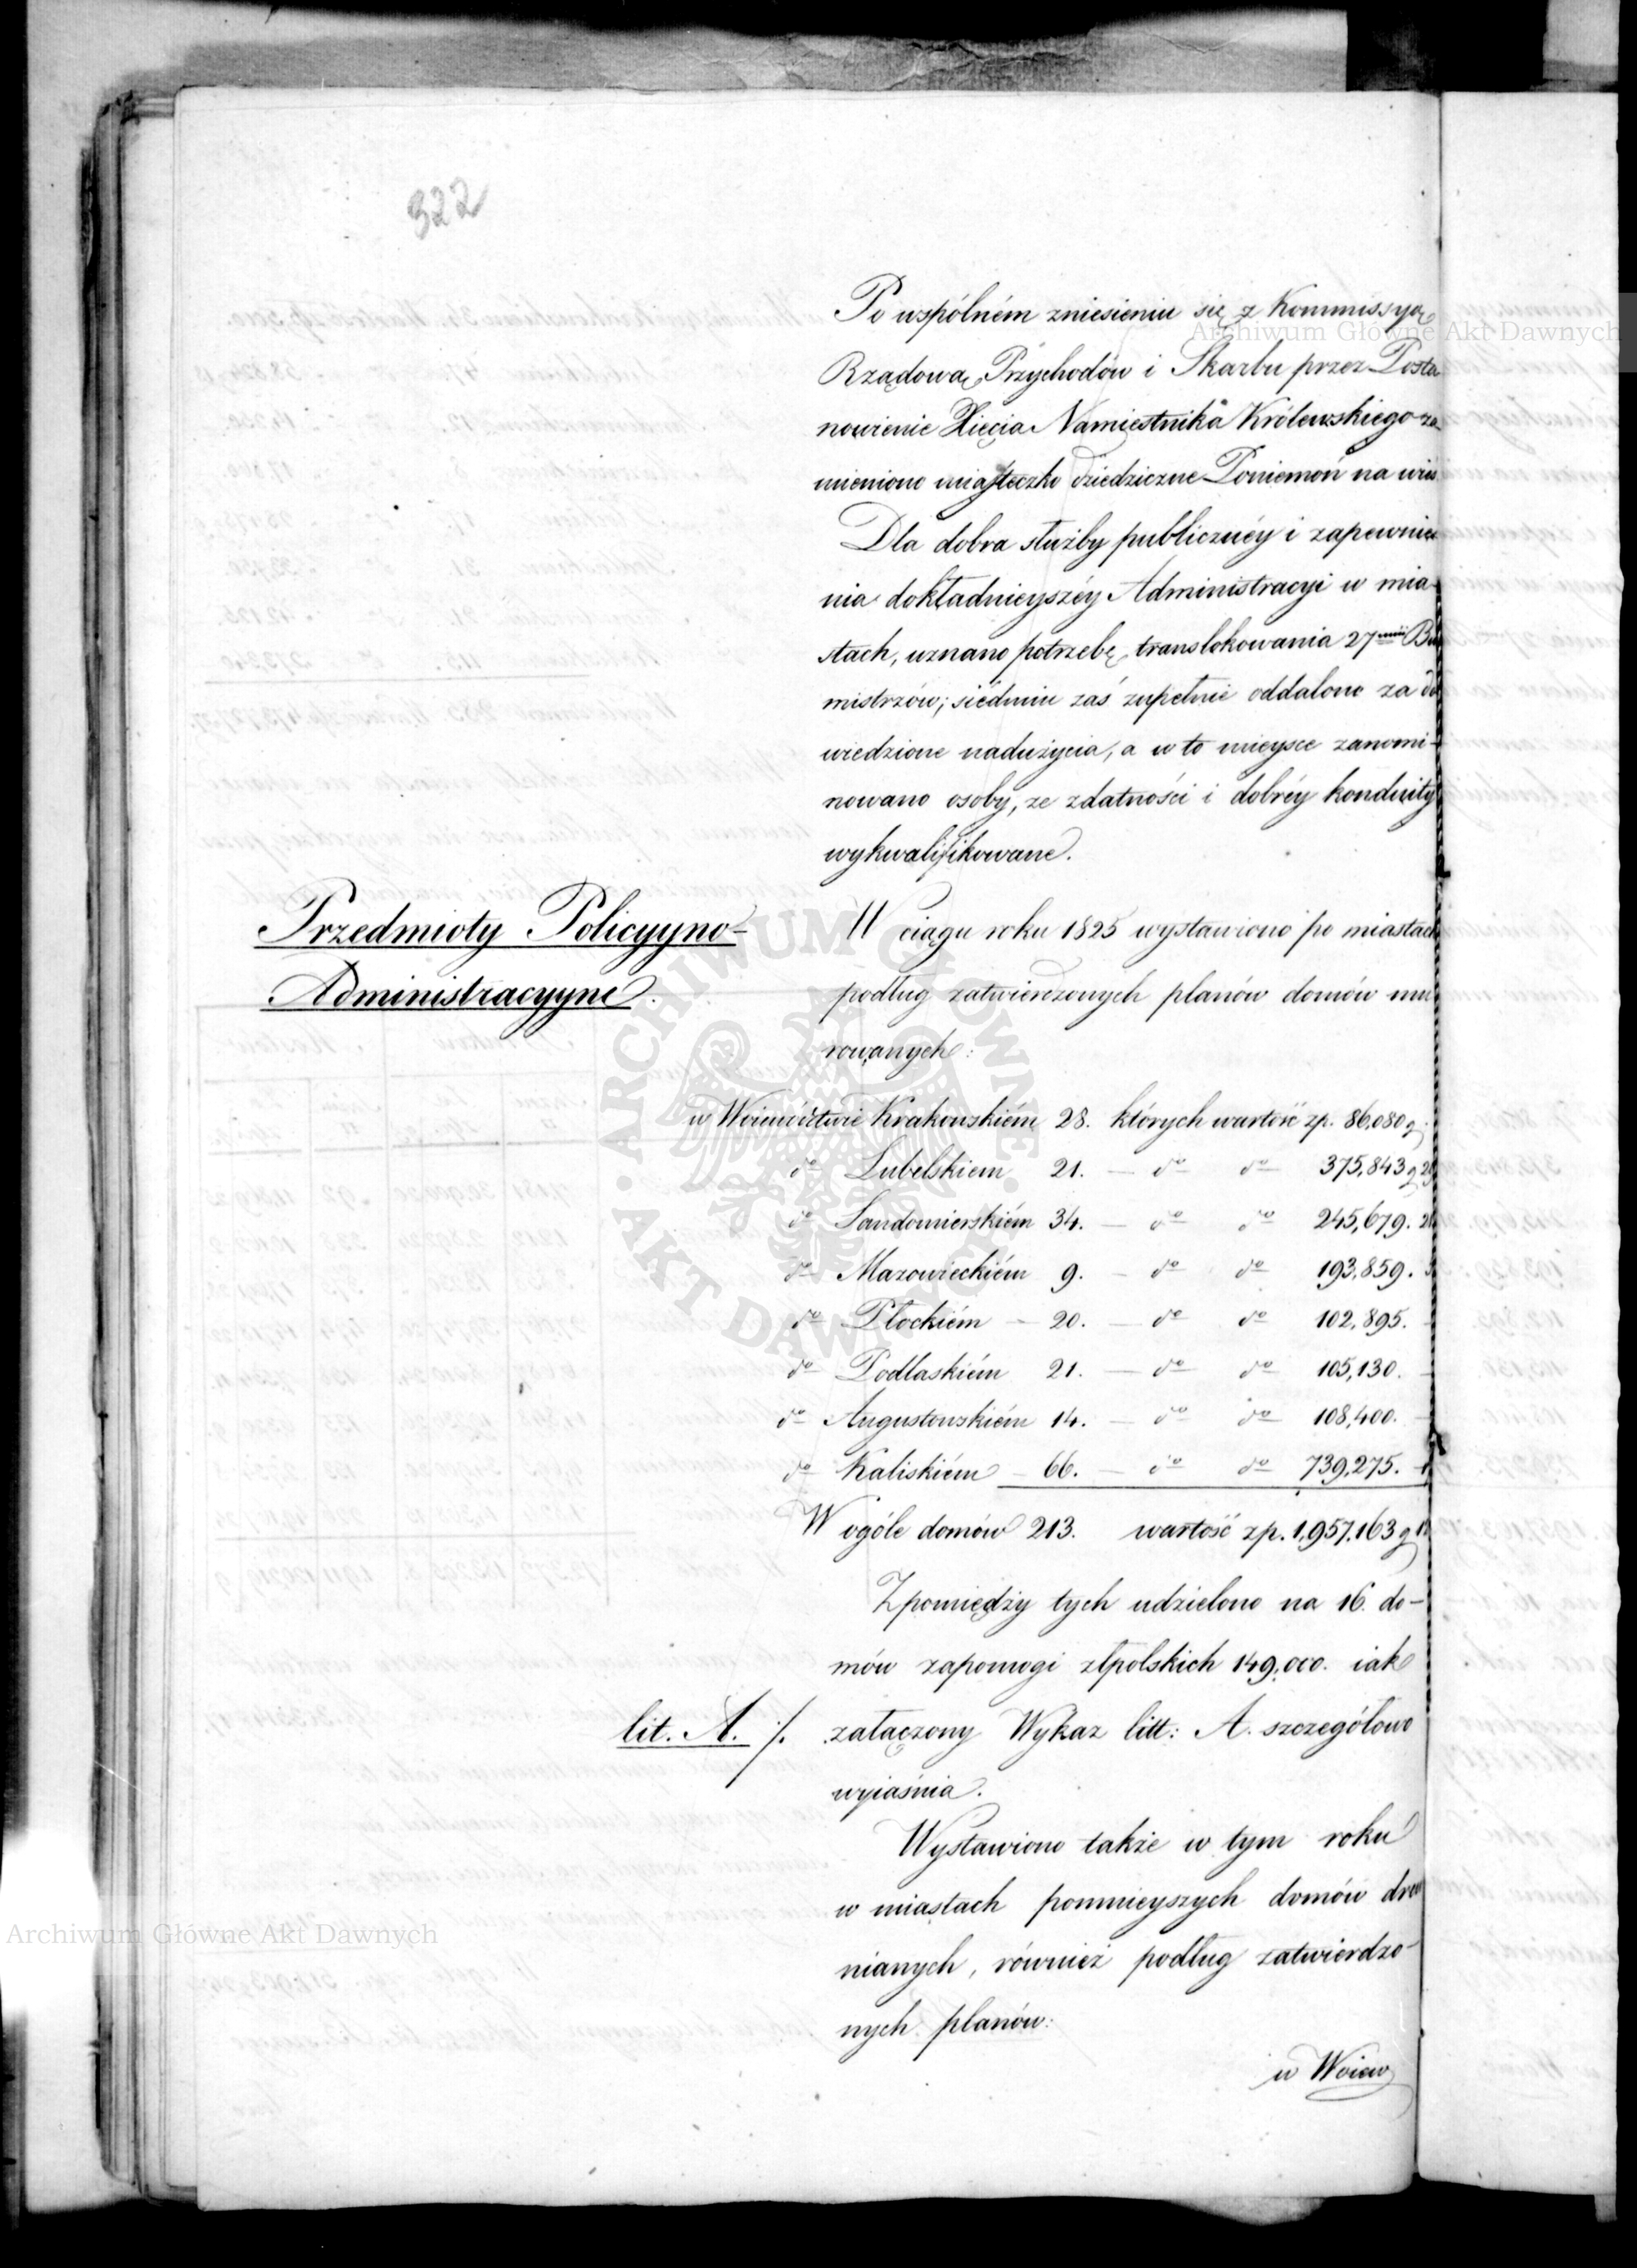 322
Po wspólném zniesieniu się z Kommissyą
Rządową Przychodów i Skarbu przez Posta
nowienie Xięcia Namiestnika Królewskiego za
mieniono miasteczko dziedziczne Poniemoń na wieś
Dla dobra służby publicznéy i zapewnie
nia dokładnieyszéy Administracyi w mia-
stach, uznano potrzebę translokowania 27miu Bur
mistrzów; siédmiu zaś zupełnie oddalono za do
wiedzione nadużycia, a w to mieysce zanomi-
nowano osoby, ze zdatności i dobréy konduity
wykwalifikowane.
Przedmioty Policyyno-
Administracyyne.
W ciągu roku 1825 wystawiono po miastach
podług zatwierdzonych planów domów mu
rowanych:
w Woiewództwie Krakowskiém 28. których wartość zp. 86,080 g
do Lubelskiem 21. — do do 375,843 g 29
do Sandomierskiém 34. — do do 245,679.
do Mazowieckiém 9. — do do 193,859.
do Płockiém — 20. — do do 102,895. —
do Podlaskiém 21. — do do 105,130. —
do Augustowskiém 14. — do do 108,400. —
do Kaliskiém — 66. — do do 739,275. —
W ogóle domów 213. wartość zp. 1,957,163 g
Zpomiędzy tych udzielono na 16. do-
mów zapomogi złpolskich 149,000. iak
lit. A. ./. załączony Wykaz litt: A. szczegółowo
wyiaśnia.
Wystawiono także w tym roku
w miastach pomnieyszych domów drew
nianych, również podług zatwierdzo-
nych planów:
w Woiew
Archiwum Główne Akt Dawnych
Archiwum Główne Akt Dawnych
ARCHIWUM GŁÓWNE • AKT DAWNYCH •